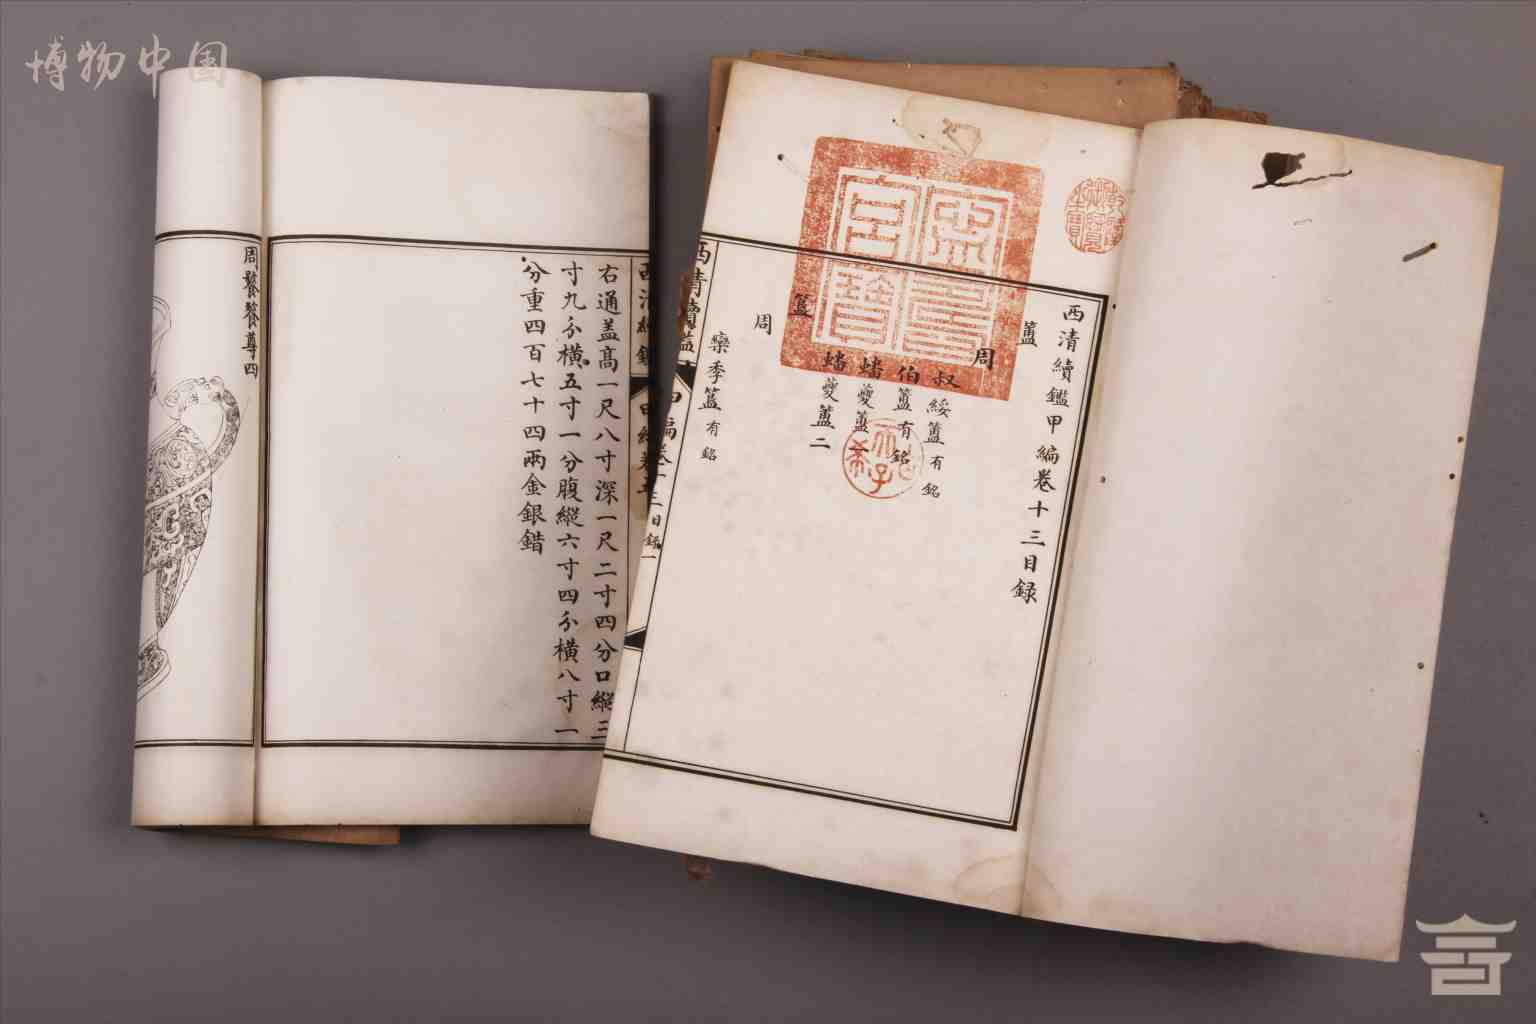 博物中国
西清續鑑甲編卷十三目録
簠
周
叔綏簠有銘
伯簠有銘
蟠夔簠
蟠夔簠二
簠
周
欒季簠有銘
右通蓋高一尺八寸深一尺二寸四分口縱三
寸九分橫五寸一分腹縱六寸四分橫八寸一
分重四百七十四兩金銀錯
周饕餮尊四